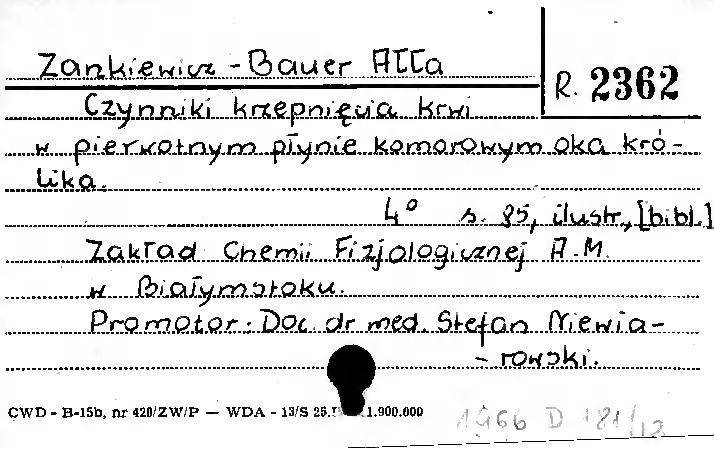 Zankiewicz - Bauer Alla
R. 2362
Czynniki krzepnięcia krwi
w pierwotnym płynie komorowym oka kró-
lika.
4° s. 85, ilustr., [bibl.]
Zakład Chemii Fizjologicznej A.M.
w Białymstoku.
Promotor: Doc. dr med. Stefan Niewia-
- rowski.
CWD - B-15b, nr 420/ZW/P — WDA - 13/S 25. 1.900.000
1966 D 181/12